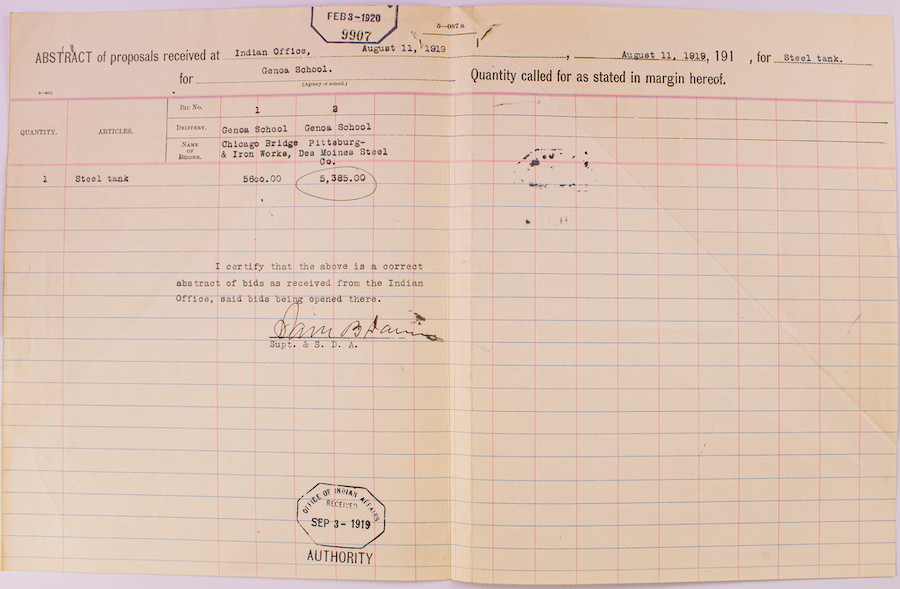 FEB 3-1920
9907
5—087a
ABSTRACT of proposals received at Indian Office, August 11, 1919, August 11, 1919, 191 , for Steel tank.
for Genoa School. Quantity called for as stated in margin hereof.
(Agency or school.)
QUANTITY. ARTICLES. BID NO. 1 2
DELIVERY. Genoa School Genoa School
NAME OF BIDDER. Chicago Bridge & Iron Works, Pittsburg-Des Moines Steel Co.
1 Steel tank 5600.00 5,385.00
I certify that the above is a correct
abstract of bids as received from the Indian
Office, said bids being opened there.
Sam B Davis
Supt. & S. D. A.
OFFICE OF INDIAN AFFAIRS
RECEIVED
SEP 3-1919
AUTHORITY